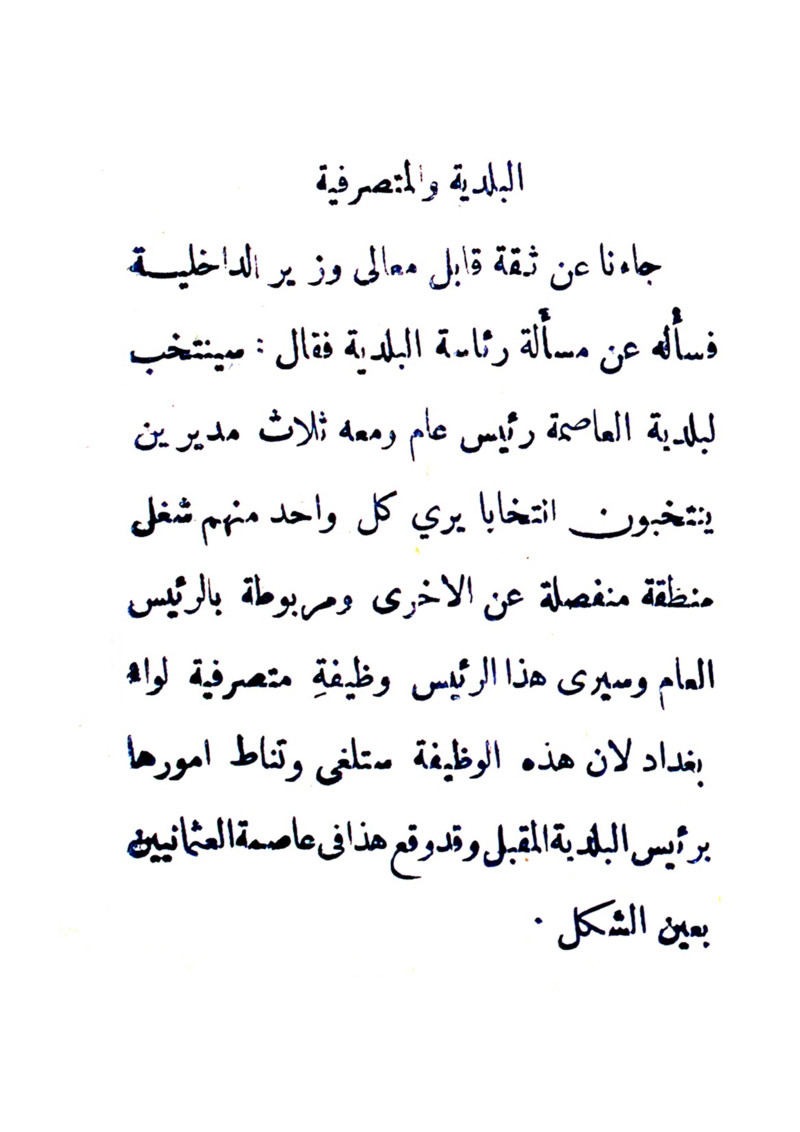 البلدية والمتصرفية
جاءنا عن ثقة قابل معالى وزير الداخليــة
فسأله عن مسألة رئاسة البلدية فقال : سينتخب
لبلدية العاصمة رئيس عام ومعه ثلاث مديرين
ينتخبون انتخابا يري كل واحد منهم شغل
منظقة منفصلة عن الاخرى ومربوطة بالرئيس
العام وسيرى هذا الرئيس وظيفةِ متصرفية لواء
بغداد لان هذه الوظيفة ستلغى وتناط امورها
برئيس البلدية المقبل وقد وقع هذا فى عاصمة العثمانيين
بعين الشكل .